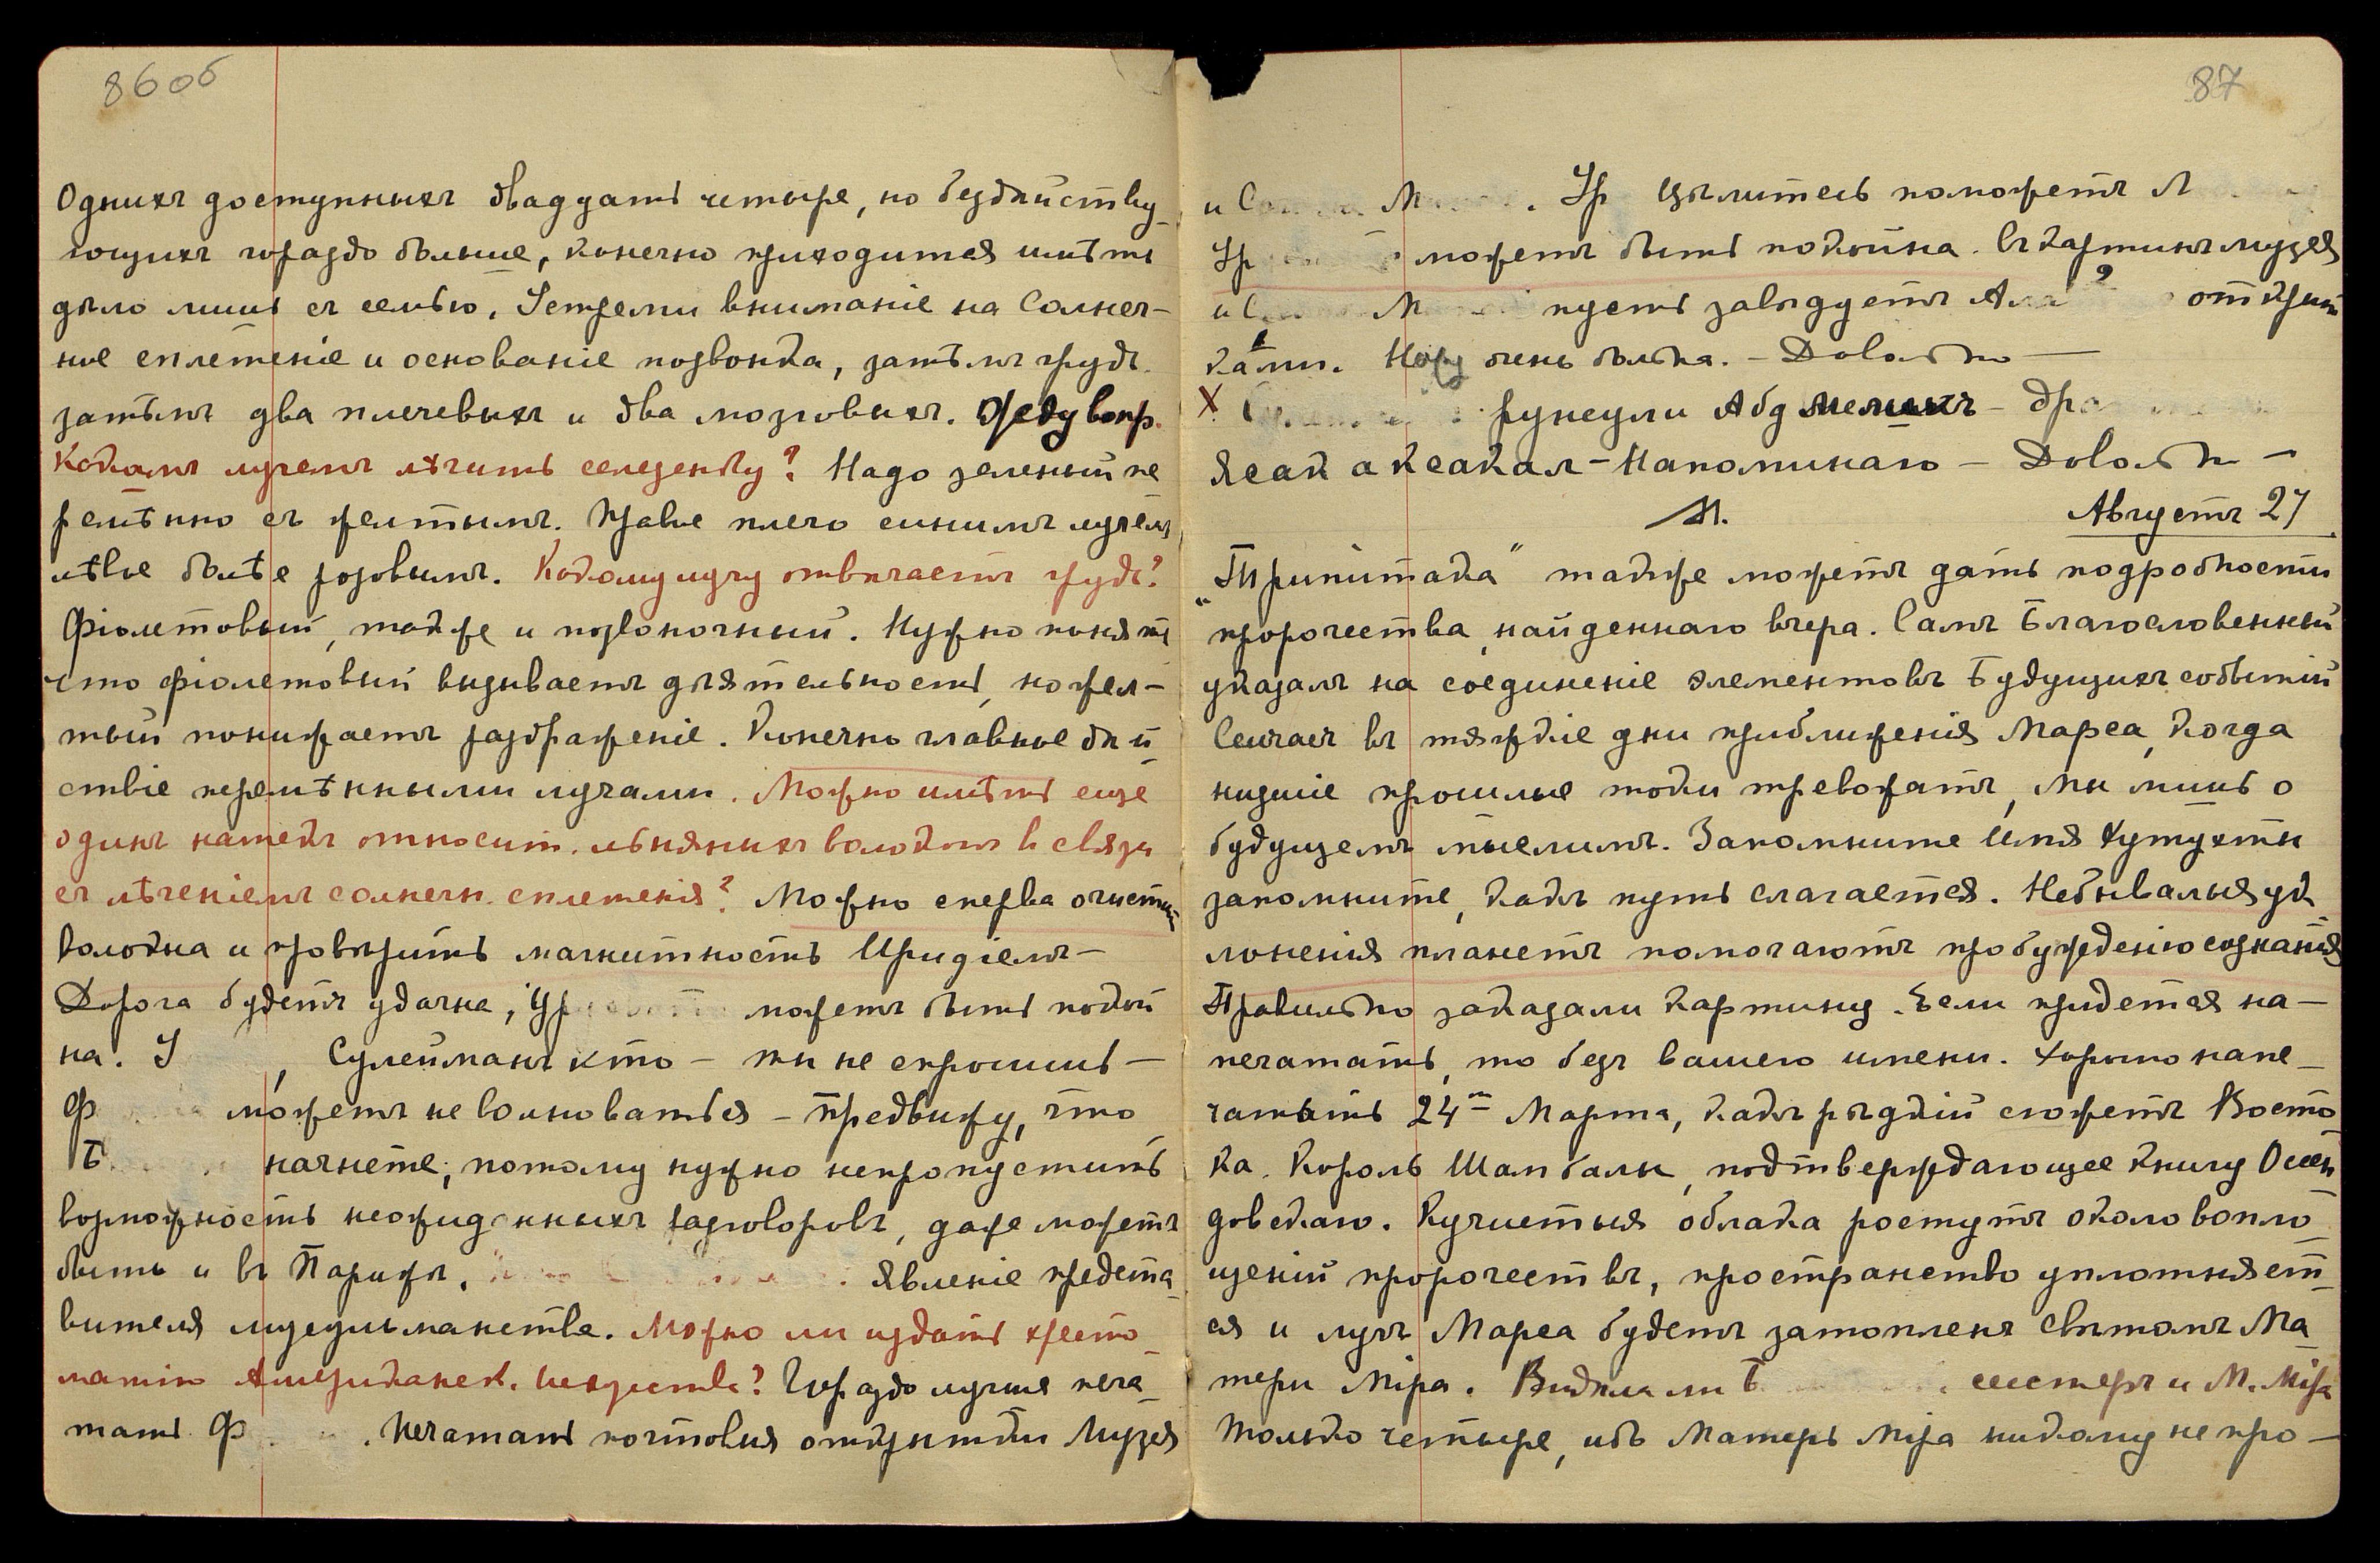 86об
Одних доступных двадцать четыре, но бездѣйству-
ющих гораздо больше, конечно приходится имѣть
дѣло лишь съ семью. Устреми вниманіе на Солнеч-
ное сплетеніе и основаніе позвонка, затѣмъ грудь.
затѣмъ два плечевыхъ и два мозговыхъ. Жду вопр.
Какимъ лучемъ лѣчить селезенку? Надо зеленый пе
ремѣнно съ желтымъ. Правое плечо синимъ лучемъ
лѣвое болѣе розовымъ. Какому лучу отвѣчаетъ грудь?
Фіолетовый, также и позвоночный. Нужно понять
что фіолетовый вызываетъ дѣятельность, но жел-
тый понижаетъ раздраженіе. Конечно главное дѣй
ствіе перемѣнными лучами. Можно имѣть еще
одинъ намекъ относит. льняныхъ волоконъ в связи
съ лѣченіемъ солнечн. сплетенія? Можно сперва очистить
волокна и провѣрить магнитность Иридіемъ—
Дорога будетъ удачна, Ур можетъ быть покой
на. У , Сулейманъ кто — ты не спросишь—
Ф можетъ не волноваться — Предвижу, что
Б начнете, потому нужно не пропустить
возможность неожиданныхъ разговоровъ, даже можетъ
быть и въ Парижѣ. явленіе предста
вителя мусульманства. Можно ли издать хресто
матію Американск. Искусства? Гораздо лучше печа
тать Ф . Печатать почтовыя открытки Музея
87
и М . Ур цѣлитель поможетъ Л
Ур можетъ быть покойна. Съ картинъ музея
и С М пусть завѣдуетъ Ала ? открыт
ками. очень больна. — Довольно —
X рунсули Абд — дра
Ясак аксакал — Напоминаю — Довольно —
М. Августъ 27
„Трипитака" также можетъ дать подробности
пророчества, найденнаго вчера. Самъ Благословенный
указалъ на соединеніе элементовъ будущихъ событій
Сейчасъ въ тяжкіе дни приближенія Марса, когда
низшіе прошлые токи тревожатъ, мы лишь о
будущемъ мыслимъ. Запомните Имя Хутухты
запомните, какъ путь слагается. Небывалыя ук
лоненія планетъ помогаютъ пробужденію сознанія
Правильно заказали картину. Если придется на—
печатать, то безъ вашего имени. Хорошо напе—
чатать 24т Марта, какъ рѣдкій сюжетъ Восто
ка. Король Шамбалы, подтверждающее книгу Оссен
довскаго. Кучистыя облака ростутъ около вопло
щеній пророчествъ, пространство уплотняет-
ся и лучъ Марса будетъ затопленъ свѣтомъ Ма
тери Міра. Видѣла ли Б сестеръ и М. Міра
Только четыре, ибо Матерь Міра никому не про—